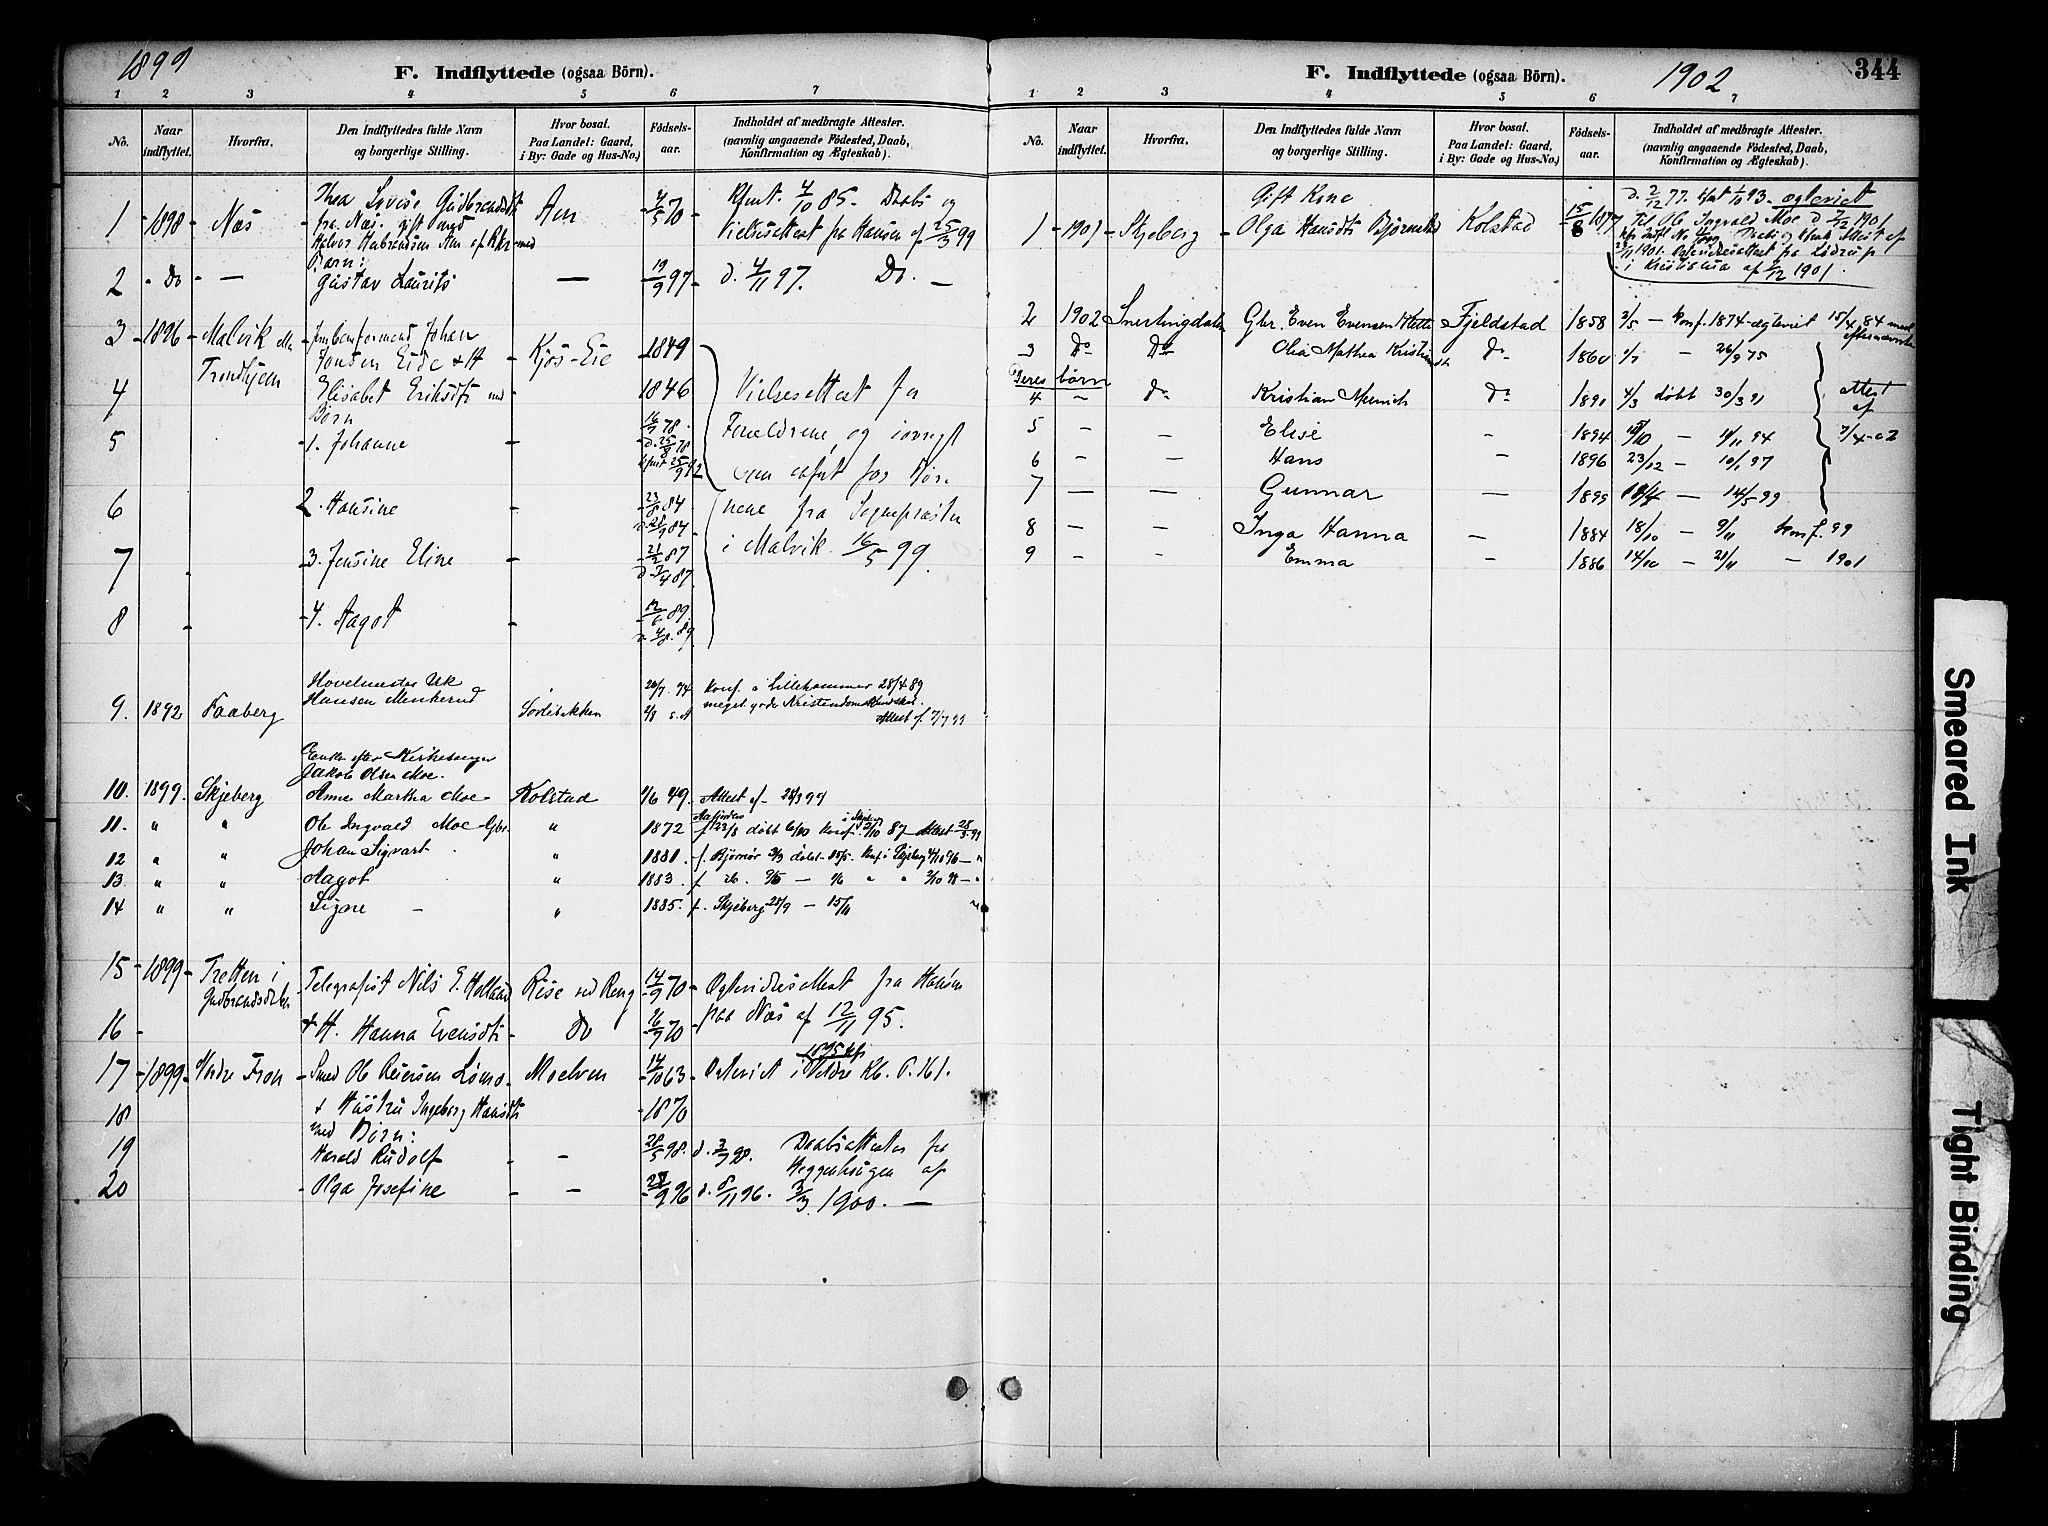 1899
F. Indflyttede (ogsaa Börn).
1 2 3 4 5 6 7
No.
Naar indflyttet.
Hvorfra.
Den Indflyttedes fulde Navn og borgerlige Stilling.
Hvor bosat. Paa Landet: Gaard, i By: Gade og Hus-No.)
Födsels-aar.
Indholdet af medbragte Attester. (navnlig angaaende Födested, Daab, Konfirmation og Ægteskab).
Thea Lovise Gudbrandsdt
1 - 1898 - Næs - fra Næs. gift med - Aen - 4/5 70 - Kfmt. 4/10 85. Daabs og
Vielsesattest fra Hansen af 25/3 99
Børn:
2 - Do - — Gustav Laurits — 19/9 97 - d. 4/11 97. Do. —
3 - 1896 - Malvik Johan
Trondhjem Eide + H - Kjøs-Eie - 1849
4 Elisabet Eriksdt med - 1846 Vielsesattest for
Børn
5 - 1. Johanne - 16/7 78. d. 25/8 78 Forældrene, og iøvrigt
25/9 92
6 2. Hansine - 23/8 84 fra Sognepræsten
7 - 3. Jensine Eline - 21/2 87 i Malvik. 16/5 99.
d. 3/4 87.
8 - 4. Aagot - 12/6 89.
Hovelmester
9. 1892 - Faaberg Hansen Menkerud Sorlibakken 20/7. 74 Konf. i Lillehammer 28/4 89
meget god Kristendomskundskab.
Attest af. 7/7 99
Enke efter Kirkesanger
Jakob Olsen Moe.
10. 1899. Skjeberg Anne Martha Moe - Kolstad 1/6 49. Attest af - 28/3 99
11. " " Ole Ingvald Moe - Gbr. " 1872 f 23/8 døbt 6/10 Konf. i Skjeberg 2/10 87 Attest 28/3 99
12 " " Johan Sigvart " 1881. f. Bjørnør 2/3 døbt Konf i Skjeberg 4/10 96 — "
13 " " Aagot " 1883. f " "
14 " " Signe - " 1885. f. Skjeberg 28/9 — 15/11 "
15 - 1899 - Tretten i Gudbrandsdalen Telegrafist Nils E. Holland Rise ved Reng 14/9 70 - Ægtevielsesattest fra Hansen
16 - + H. Hanna Evensdt - Do 16/9 70 - paa Næs af 12/11 95.
17 - 1899 - Nordre Fron - Smed Ole Reiersen Lømo - Moelven 14/10 63 - Ægteviet 1895 i Veldre Kb. P. 161.
18 + Hustru Ingeborg Hansdt - 1870
med Børn:
19 Harald Rudolf - — 28/5 98. d. 3/7 98. Daabsattester fra
Heggenhaugen af
20 - Olga Josefine - — 28/9 96 d. 8/11 96. 3/3 1900. —
F. Indflyttede (ogsaa Börn).
1902
344
1 2 3 4 5 6 7
No.
Naar indflyttet.
Hvorfra.
Den Indflyttedes fulde Navn og borgerlige Stilling.
Hvor bosat. Paa Landet: Gaard, i By: Gade og Hus-No.)
Födsels-aar.
Indholdet af medbragte Attester. (navnlig angaaende Födested, Daab, Konfirmation og Ægteskab).
Gift Kone
d. 2/12 77. Kfmt 1/10 93. ægteviet
1 - 1901 - Skjeberg - Olga Hansdt Bjørnstad Kolstad 15/8 1877 Til Ole Ingvald Moe d 7/12 1901
Daabs og Kfmt. Attest af
1901. Ægtevielsesattest fra Lødrup
i Kristiania af 7/12 1901.
2 1902 Snertingdalen Gbr. Even Evensen Klette Fjeldstad 1858 3/5 — Konf. 1874 - ægteviet 15/4 84 med
3 Do Do Olia Mathea Kristiansdt Do 1860 1/7 — 26/9 75
Deres børn
4 - Do Kristian Meinich Do 1891 4/3 døbt 30/3 91 Attest
af
5 - — Elise - 1894 — 11/11 94 7/4-02
6 - — Hans - 1896 23/12 — 10/1 97
7 — — Gunnar — 1899 — 14/5 99
8 - — Inga Hanna — 1884 18/10 — 9/11 Konf. 99
9 - - Emma - 1886 14/10 — 21/11 — 1901
Smeared Ink
Tight Binding